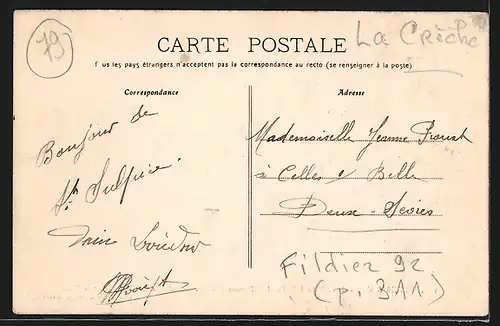 79
La Crèche
CARTE POSTALE
us les pays étrangers n'acceptent pas la correspondance au recto (se renseigner à la poste)
Correspondance
Adresse
Bonjour de
St Sulpice.
Mademoiselle Jeanne Proust
à Celles s/ Belle
Deux-Sèvres
Fildier 92
(p. 311)